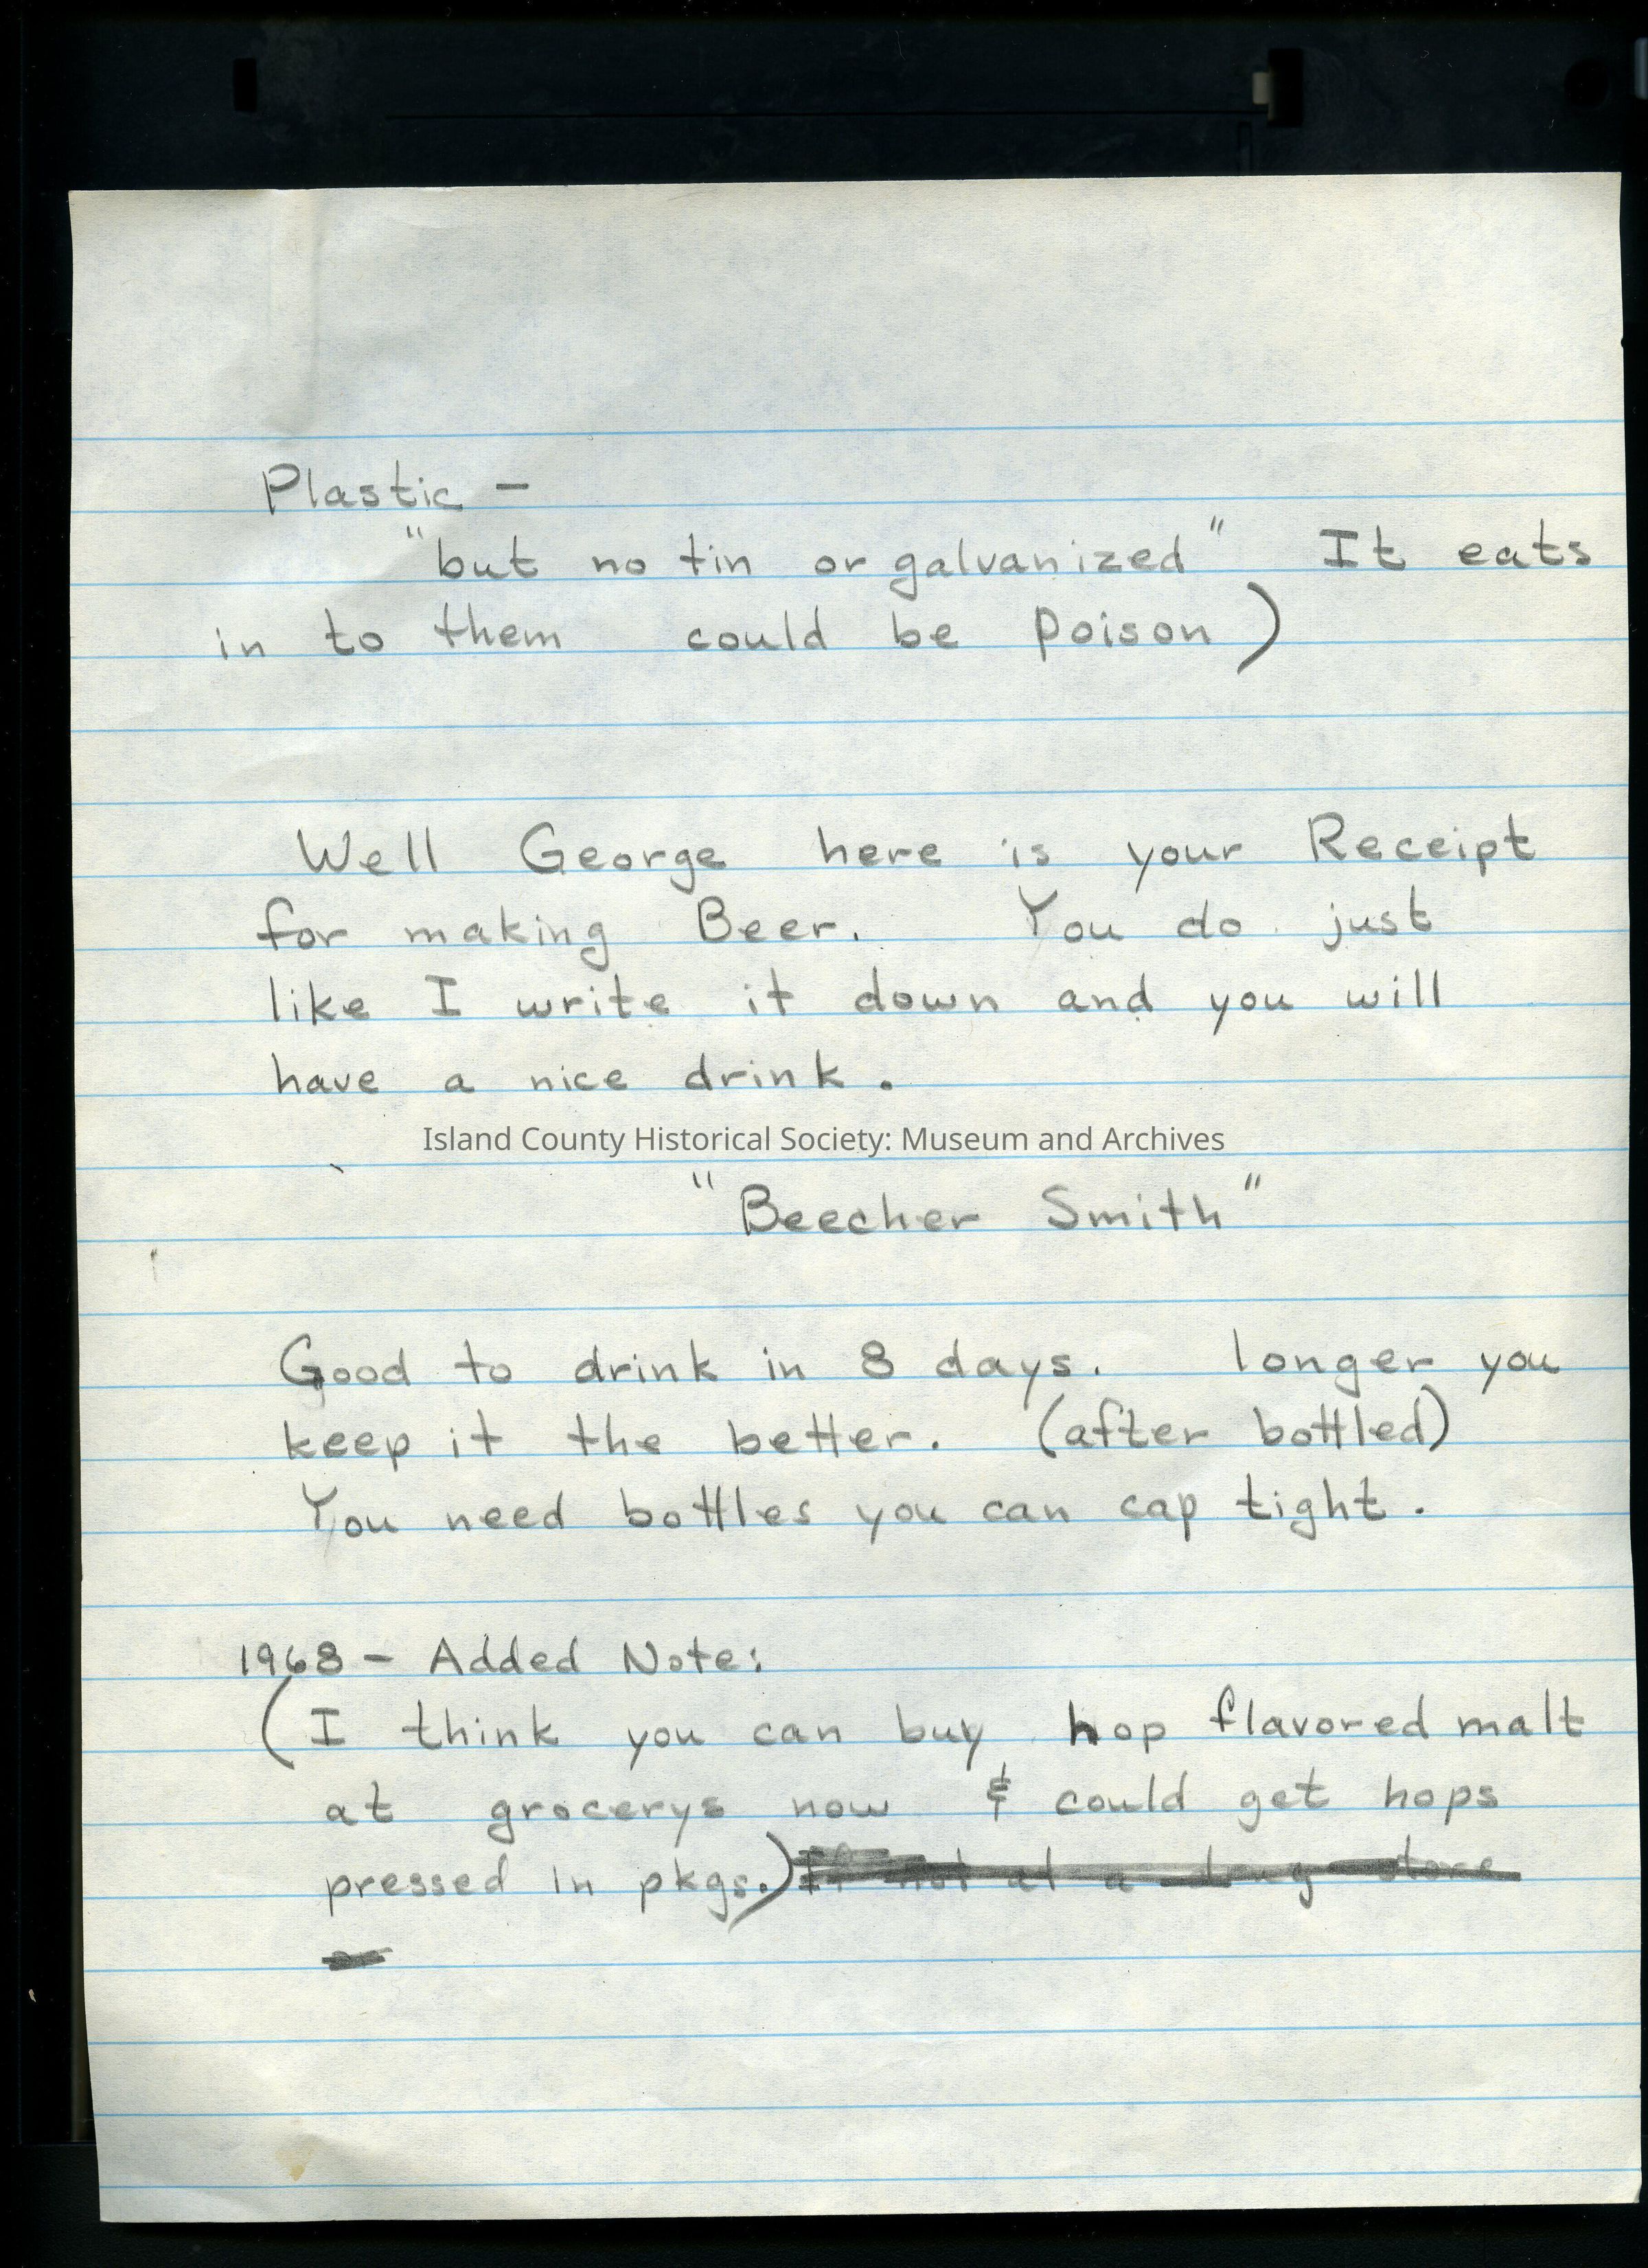 Plastic –
"but no tin or galvanized" It eats
in to them could be poison)
Well George here is your Receipt
for making Beer. You do just
like I write it down and you will
have a nice drink.
Island County Historical Society: Museum and Archives
"Beecher Smith"
Good to drink in 8 days. longer you
keep it the better. (after bottled)
You need bottles you can cap tight.
1968 – Added Note:
(I think you can buy hop flavored malt
at grocerys now & could get hops
pressed in pkgs.) If not at a drug store